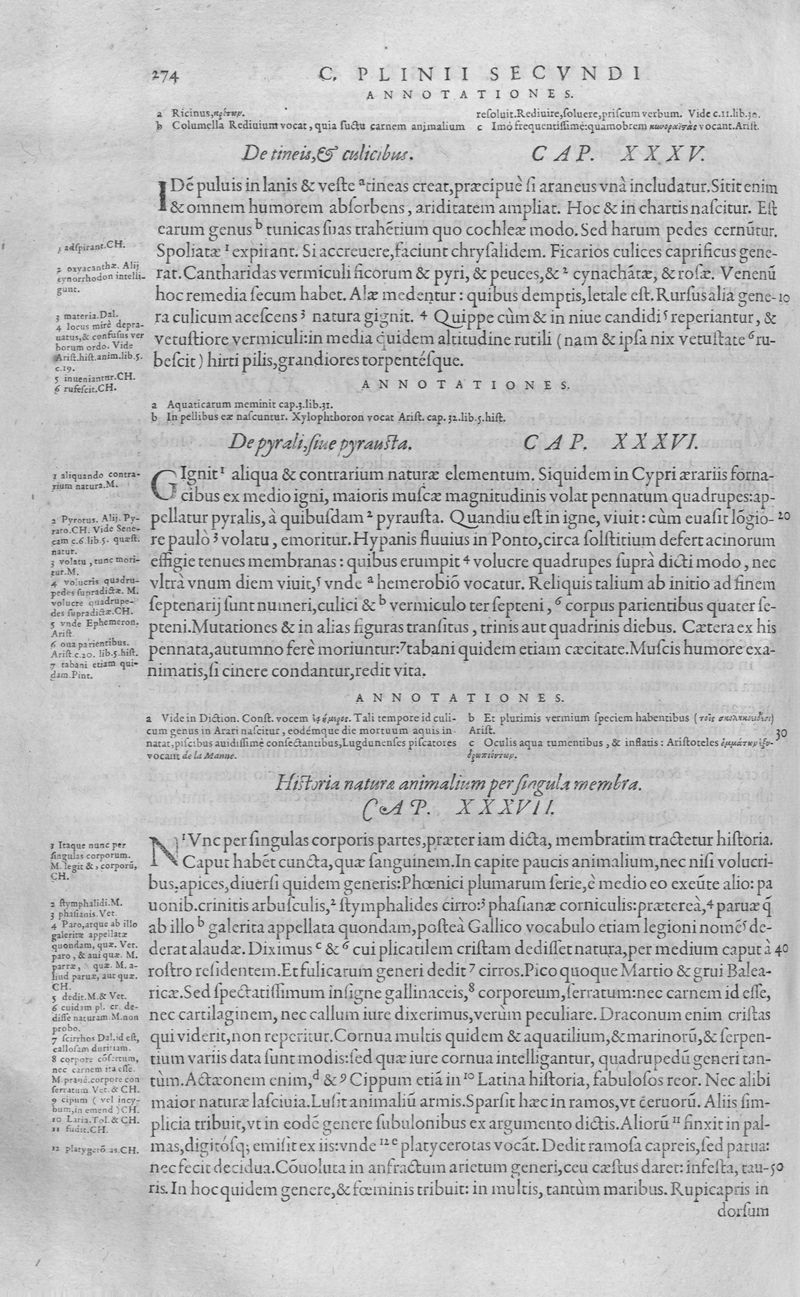 274
C. PLINII SECVNDI
ANNOTATIONES.
a Ricinus,
b Columella Rediuium vocat, quia suctu carnem animalium
resoluit. Rediuire, soluere, priscum verbum. Vide c.11.lib.30.
c Imò frequentissimè: quamobrem vocant. Arist.
De tineis, & culicibus. CAP. XXXV.
IDé puluis in lanis & veste ᵃ tineas creat, præcipuè si araneus vnà includatur. Sitit enim
& omnem humorem absorbens, ariditatem ampliat. Hoc & in chartis nascitur. Est
earum genus ᵇ tunicas suas trahétium quo cochleæ modo. Sed harum pedes cernūtur.
Spoliatæ ¹ expirant. Si accreuere, faciunt chrysalidem. Ficarios culices caprificus gene-
rat. Cantharidas vermiculi ficorum & pyri, & peuces, & ² cynachátæ, & rosæ. Venenū
hoc remedia secum habet. Alæ medentur: quibus demptis, letale est. Rursus alia gene- 10
ra culicum acescens ³ natura gignit. ⁴ Quippe cùm & in niue candidi ⁵ reperiantur, &
vetustiore vermiculi: in media quidem altitudine rutili (nam & ipsa nix vetustate ⁶ ru-
bescit) hirti pilis, grandiores torpentésque.
1 adspirant. CH.
2 oxyacanthæ. Alij
cynorrhodon intelli-
gunt.
3 materia. Dal.
4 locus mirè depra-
uatus, & confusus ver
borum ordo. Vide
Arist. hist. anim. lib. 5.
c.19.
5 inueniantur. CH.
6 rufescit. CH.
ANNOTATIONES.
a Aquaticarum meminit cap.3.lib.31.
b In pellibus eæ nascuntur. Xylophthoron vocat Arist. cap. 32.lib.5.hist.
De pyrali, siue pyrausta. CAP. XXXVI.
GIgnit ¹ aliqua & contrarium naturæ elementum. Siquidem in Cypri ærariis forna-
cibus ex medio igni, maioris muscæ magnitudinis volat pennatum quadrupes: ap-
pellatur pyralis, à quibusdam ² pyrausta. Quandiu est in igne, viuit: cùm euasit lógio- 20
re paulò ³ volatu, emoritur. Hypanis fluuius in Ponto, circa solstitium defert acinorum
effigie tenues membranas: quibus erumpit ⁴ volucre quadrupes suprà dicti modo, nec
vltrà vnum diem viuit, ⁵ vnde ᵃ hemerobiō vocatur. Reliquis talium ab initio ad finem
septenarij sunt numeri, culici & ᵇ vermiculo ter septeni, ⁶ corpus parientibus quater se-
pteni. Mutationes & in alias figuras transitus, trinis aut quadrinis diebus. Cætera ex his
pennata, autumno ferè moriuntur: ⁷ tabani quidem etiam cæcitate. Muscis humore exa-
nimatis, si cinere condantur, redit vita.
1 aliquando contra-
rium natura. M.
2 Pyrotus. Alij. Py-
raro. CH. Vide Sene-
cam c.6 lib.5. quæst.
natur.
3 volatu, tunc mori-
tur. M.
4 volucris quadru-
pedes supradictæ. M.
volucre quadrupe-
des supradictæ. CH.
5 vnde Ephemeron.
Arist.
6 oua parientibus.
Arist. c.20. lib.5. hist.
7 tabani etiam qui-
dam. Pint.
ANNOTATIONES.
a Vide in Diction. Const. vocem Tali tempore id culi-
cum genus in Arari nascitur, eodémque die mortuum aquis in-
natat, piscibus auidissimè consectantibus, Lugdunenses piscatores
vocant de la Manne.
b Et plurimis vermium speciem habentibus
Arist. 30
c Oculis aqua tumentibus, & inflatis: Aristoteles
Historia natura animalium per singula membra.
CAP. XXXVII.
N ¹ Vnc per singulas corporis partes, præter iam dicta, membratim tractetur historia.
Caput habét cuncta, quæ sanguinem. In capite paucis animalium, nec nisi volucri-
bus, apices, diuersi quidem generis: Phœnici plumarum serie, è medio eo exeūte alio: pa
uonib. crinitis arbusculis, ² stymphalides cirro: ³ phasianæ corniculis: prætereà, ⁴ paruæ q̄
ab illo ᵇ galerita appellata quondam, posteà Gallico vocabulo etiam legioni nomé ⁵ de-
derat alaudæ. Diximus ᶜ & ⁶ cui plicatilem cristam dedisset natura, per medium caput à 40
rostro residentem. Et fulicarum generi dedit ⁷ cirros. Pico quoque Martio & grui Balea-
ricæ. Sed spectatissimum insigne gallinaceis, ⁸ corporeum, serratum: nec carnem id esse,
nec cartilaginem, nec callum iure dixerimus, verùm peculiare. Draconum enim cristas
qui viderit, non reperitur. Cornua multis quidem & aquatilium, & marinorū, & serpen-
tium variis data sunt modis: sed quæ iure cornua intelligantur, quadrupedū generi tan-
tùm. Actæonem enim, ᵈ & ⁹ Cippum etiā in ¹⁰ Latina historia, fabulosos reor. Nec alibi
maior naturæ lasciuia. Lusit animaliū armis. Sparsit hæc in ramos, vt ceruorū. Aliis sim-
plicia tribuit, vt in eodé genere subulonibus ex argumento dictis. Aliorū ¹¹ finxit in pal-
mas, digitósq; emisit ex iis: vnde ¹² ᵉ platycerotas vocāt. Dedit ramosa capreis, sed parua:
nec fecit decidua. Cōuoluta in anfractum arietum generi, ceu cæstus daret: infesta, tau- 50
ris. In hoc quidem genere, & fœminis tribuit: in multis, tantùm maribus. Rupicapris in
dorsum
1 Itaque nunc per
singulas corporum.
M. legit &, corporū,
CH.
2 stymphalidi. M.
3 phasianis. Vet.
4 Paro, atque ab illo
galeritæ appellatæ
quondam, quæ. Vet.
paro, & aui quæ. M.
parræ, quæ. M. a-
liud paruæ, aut quæ.
CH.
5 dedit. M. & Vet.
6 cuidam pl. cr. de-
disse naturam. M. non
probo.
7 scirrhos Dal. id est,
callosam duritiam.
8 corpore cōsertum,
nec carnem ita esse.
M. prauè. corpore con
serratum Vet. & CH.
9 cipum (vel incy-
bum, in emend) CH.
10 Laria. Tol. & CH.
11 fudit. CH.
12 platygerō as. CH.